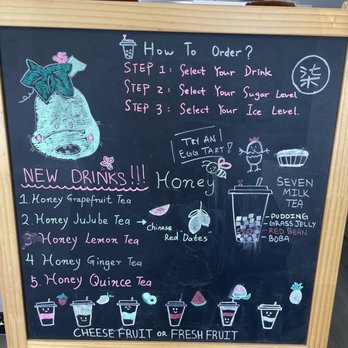 How To Order?
STEP 1: Select Your Drink
STEP 2: Select Your Sugar Level
STEP 3: Select Your Ice Level.
TRY AN
EGG TART?
NEW DRINKS!!!
1. Honey Grapefruit Tea
2. Honey JuJube Tea → Chinese
Red "Dates"
Honey Lemon Tea
4 Honey Ginger Tea
5. Honey Quince Tea
Honey
SEVEN
MILK
TEA
-PUDDING
-GRASSJELLY
-RED BEAN
-BOBA
CHEESE FRUIT OR FRESH FRUIT